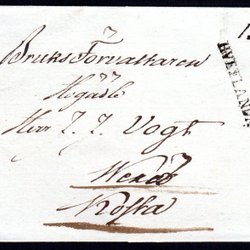 Bruks Forvaltaren
Högädle
Herr J. J. Vogt
Wexiö
Klofka
HVETLANDA